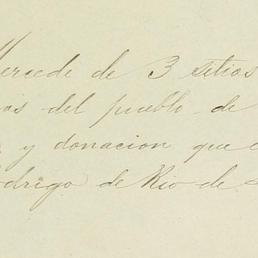 Mercede de 3 sitios
del pueblo de
y donacion que
odrigo de Rio de